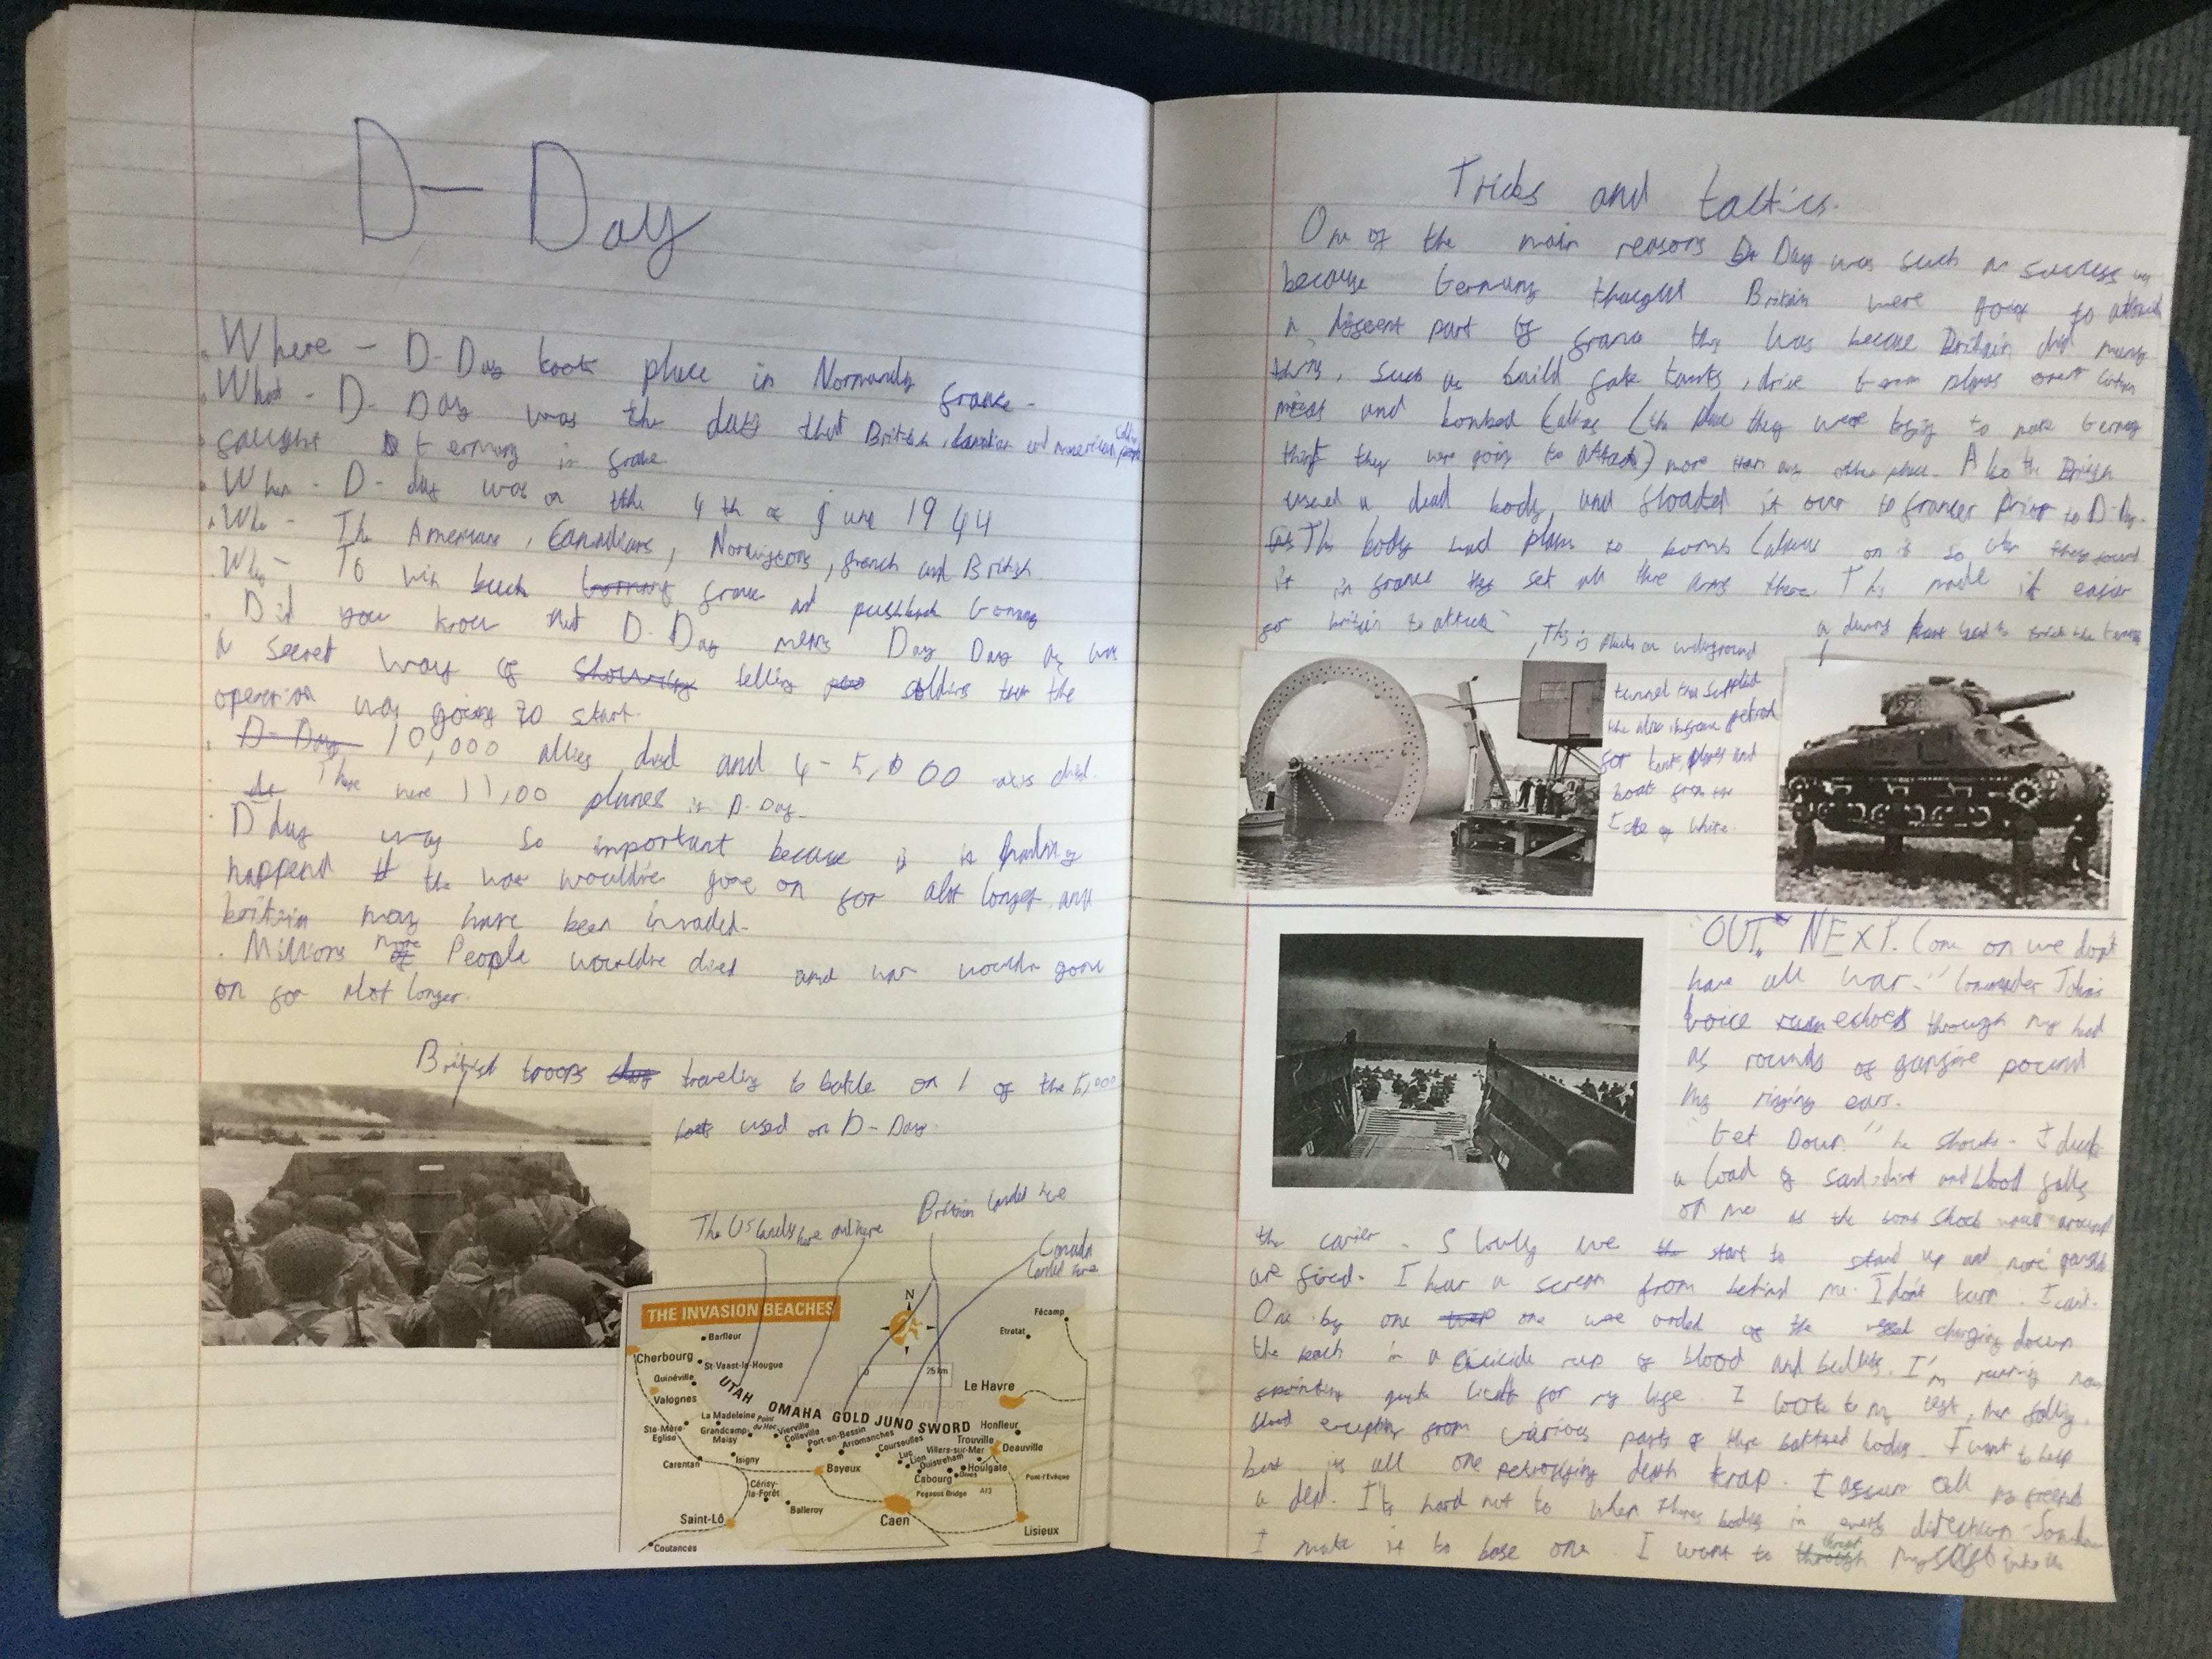 D-Day
. Where - D-Day took place in Normandy france.
. What - D-Day was the day that British, Canadian and american
fought in france
. When - D-day was on the 4th of june 1944
. Who - The Americans, Canadians, Norwigeons, french and British.
. Why - To win back france and pushback Germany
. Did you know that D-Day means Day Day as was
a secret way of showing telling soldiers that the
operation was going to start.
. D-Day 10,000 allies died and 4-5,000 axis died.
. There were 11,00 planes in D-Day
. D day was so important because if
happend the war wouldve gone on for alot longer and
britain may have been invaded.
. Millions more People wouldve died and war gone
on for alot longer.
British troops traveling to battle on 1 of the 5,000
boats used on D-Day
The US lands here and here
Britain landed here
Canada
landed here
THE INVASION BEACHES
N
Fécamp
Etretat
Barfleur
Cherbourg
St-Vaast-la-Hougue
0 25 km
Quinéville
Le Havre
Valognes
UTAH OMAHA GOLD JUNO SWORD
La Madeleine
Pointe du Hoc
Vierville
Honfleur
Ste-Mère-Eglise
Grandcamp-Maisy
Colleville
Port-en-Bessin
Arromanches
Courseulles
Trouville
Villers-sur-Mer
Deauville
Luc
Lion
Ouistreham
Houlgate
Carentan
Isigny
Bayeux
Cabourg
Dives
Pont-l'Evêque
Pegasus Bridge
A13
Cérisy-la-Forêt
Balleroy
Caen
Saint-Lô
Lisieux
Coutances
Tricks and tactics.
One of the main reasons D Day was such a success was
because Germany thought Britain were going to attack
a different part of france this was because Britain did many
things, such as build fake tanks, drive planes over
and bombed Calais (the place they were trying to make Germany
think they were going to attack) more than any other place. Also the British
used a dead body, and floated it over to france prior to D-Day.
This body had plans to bomb Calais on it so when they found
it in france they set all there army there. This made it easier
for britain to attack
This is an underground
tunnel that supplied
the petrol
for tanks, planes and
boats from the
Isle of White.
a dummy used to trick the Germans
"OUT. NEXT. Come on we don't
have all war." Commander Johns
voice echoes through my head
as rounds of gunfire pound
my ringing ears.
"Get Down" he shouts. I duck
a load of sand, dirt and blood falls
on me as the bomb shock around
the carier. Slowly we start to stand up and more
are fired. I hear a scream from behind me. I dont turn. I cant.
One by one we of the charging down
the beach in a suicide run of blood and bullets. I'm running now
sprinting for my life. I look to my left, men falling.
blood erupting from various parts of there battered bodies. I want to help
but its all one petrifying death trap. I assume all my friends
dead. It's hard not to when theres bodies in every direction. Somehow
I make it to base one. I want to throw myself into the